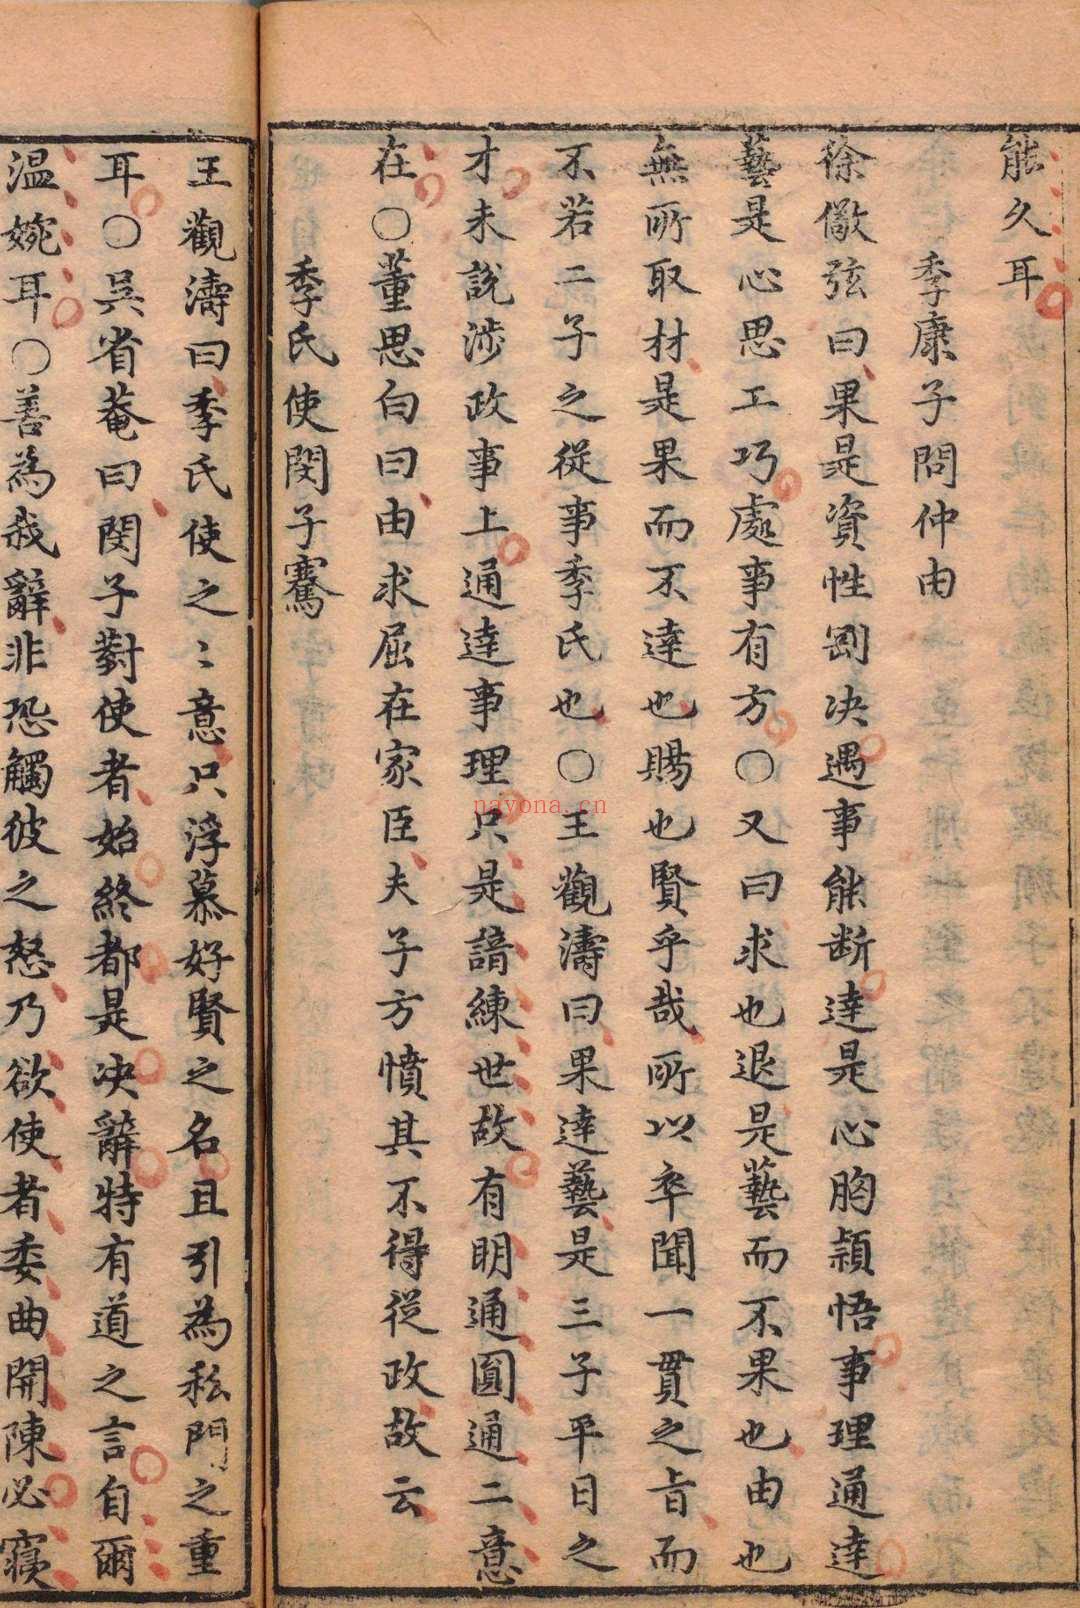 能久耳
季康子問仲由
徐儆弦曰果是資性剛决遇事能断達是心胸穎悟事理通達
藝是心思工巧處事有方○又曰求也退是藝而不果也由也
無所取材是果而不達也賜也賢乎哉所以卒聞一貫之旨而
不若二子之從事季氏也○王觀濤曰果達藝是三子平日之
才未說涉政事上通達事理只是諳練世故有明通圓通二意
在○董思白曰由求屈在家臣夫子方憤其不得從政故云
季氏使閔子騫
王觀濤曰季氏使之〻意只浮慕好賢之名且引為私門之重
耳○吳省菴曰閔子對使者始終都是决辭特有道之言自爾
温婉耳○善為我辭非恐觸彼之怒乃欲使者委曲開陳必寢
nayona.cn